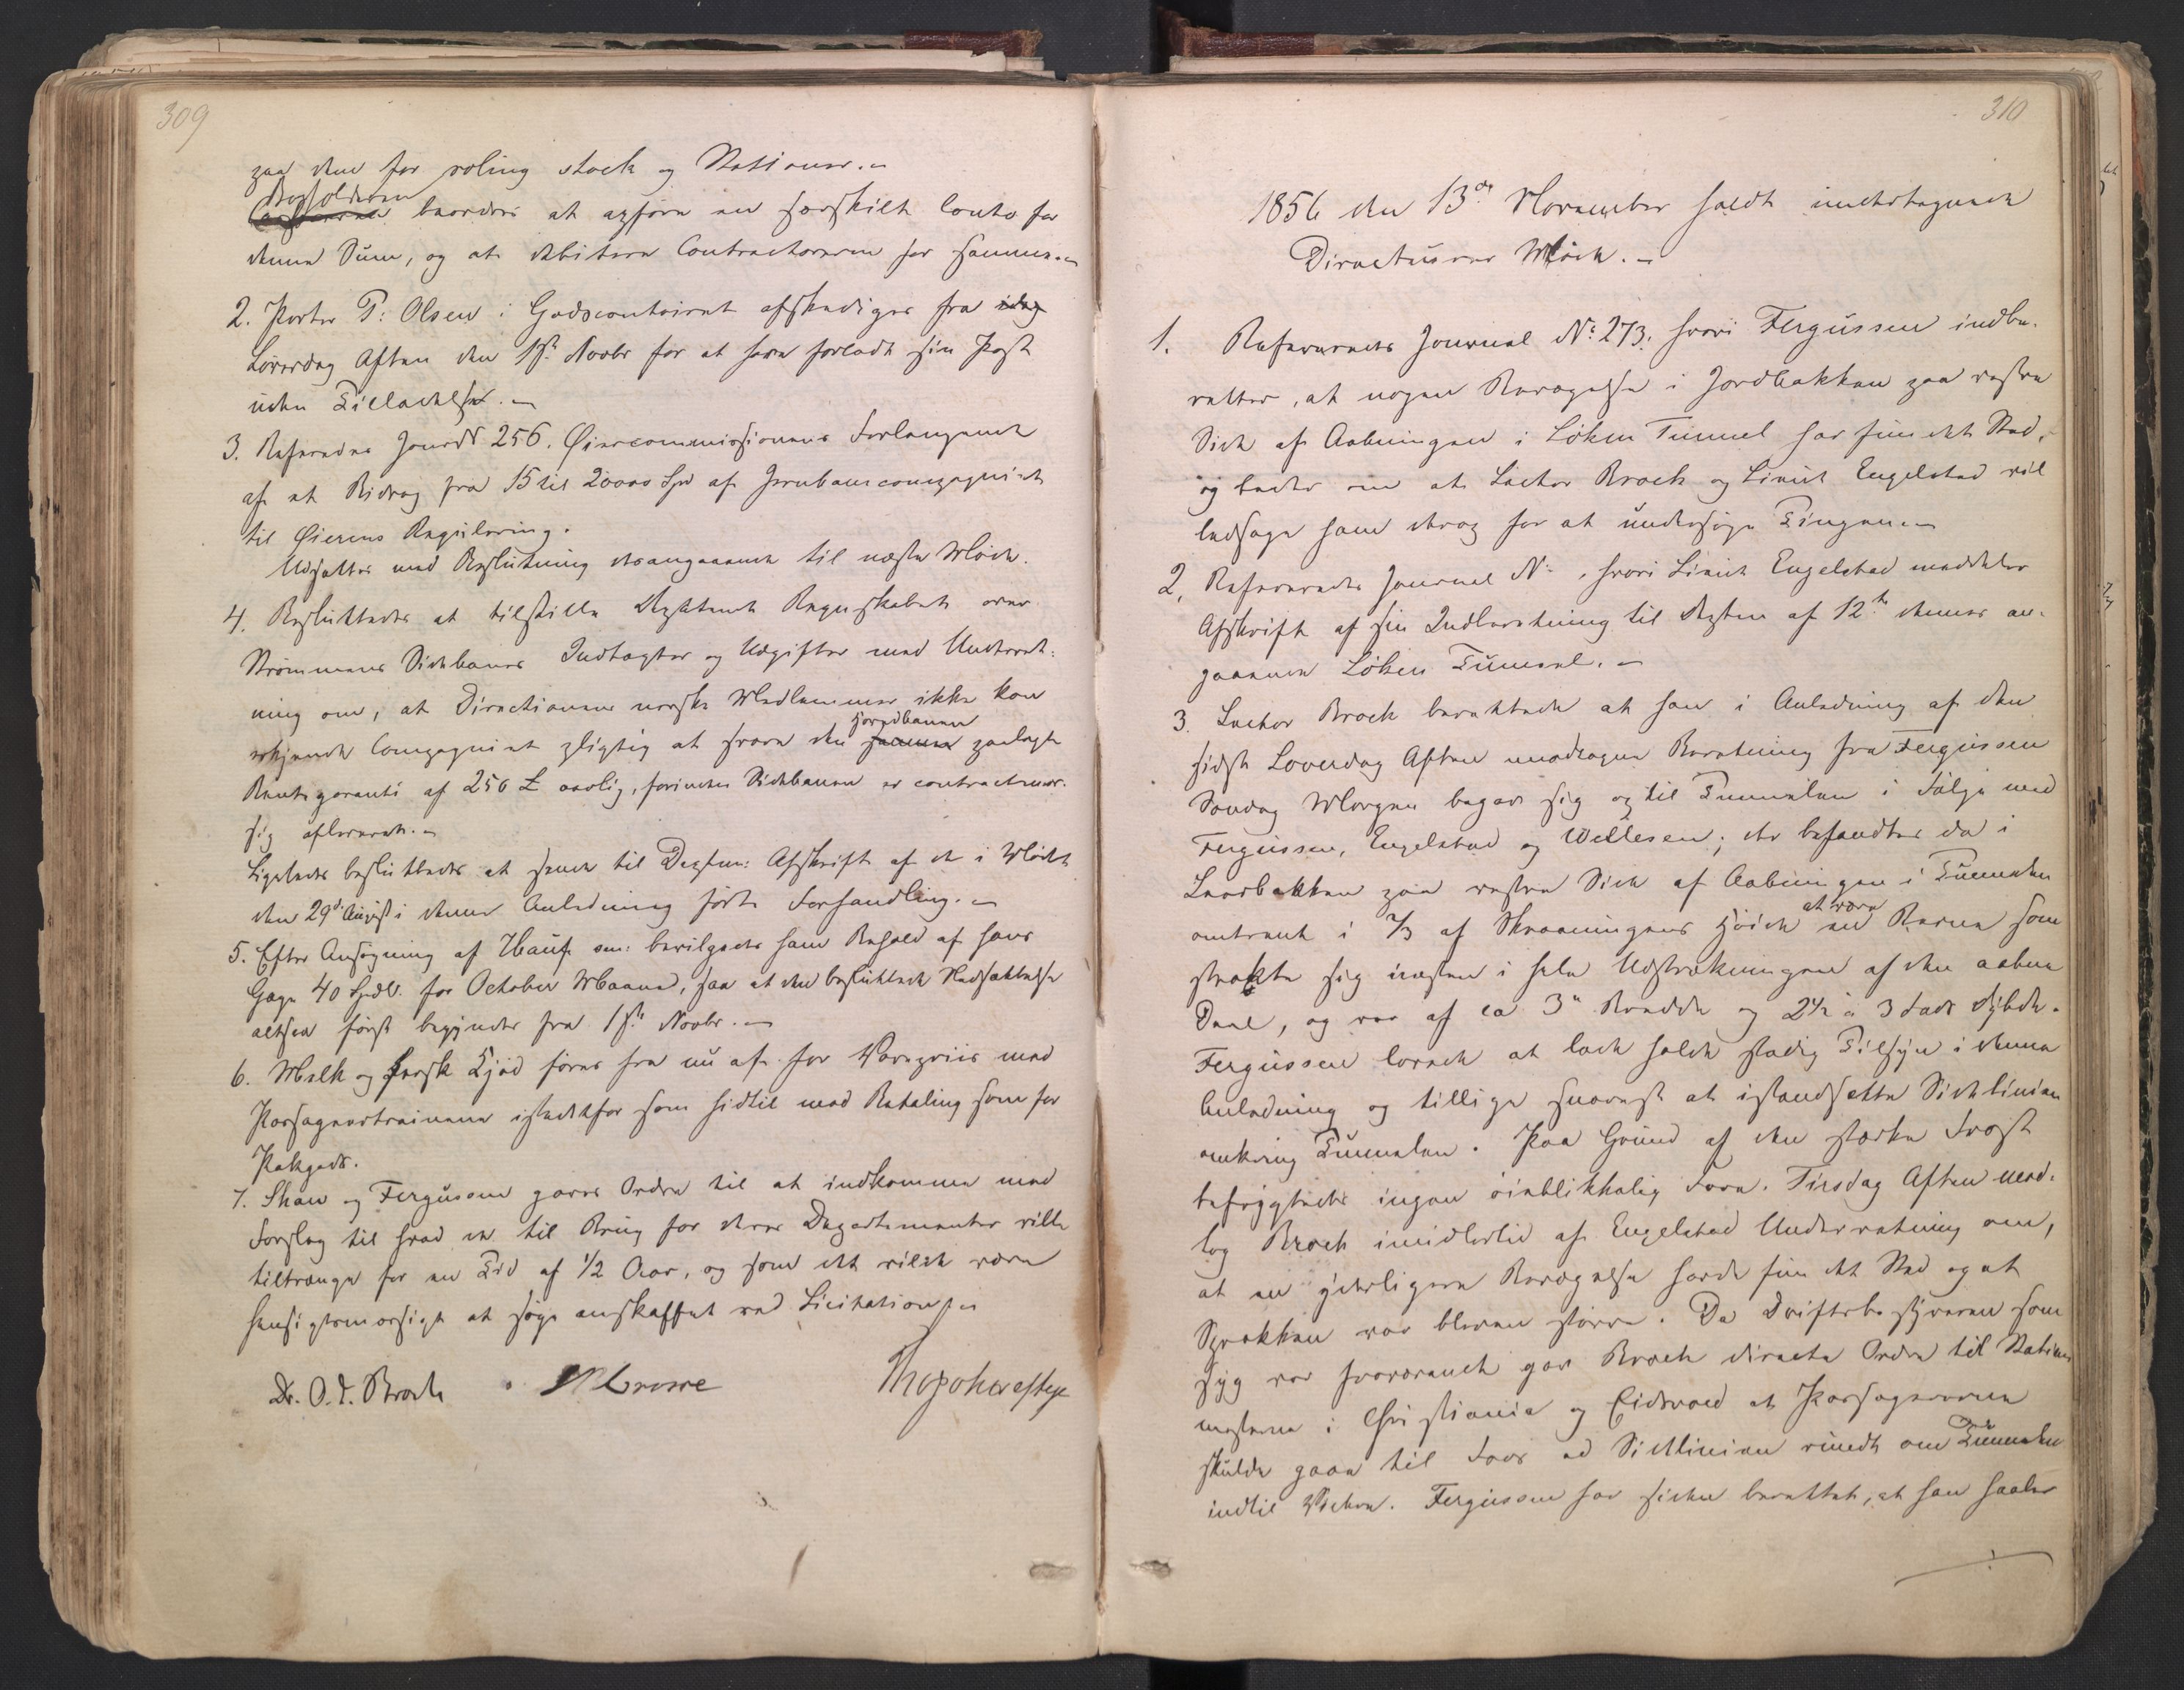 309
paa dem for roling stock og Stationer.-
Bogholderen
beordres at opføre en særskilt Conto for
denne Sum, og at debitere Contractorerne for samme.-
2. Porter P: Olsen i Godscontoiret afskediges fra idag
Løverdag Aften den 1ste Novbr for at have forladt sin Post
uden Tilladelse.-
3. Refereredes Jour No 256. Øierencommissionens Forlangende
af et Bidrag fra 15 til 20000 Spd af Jernbanecompagniet
til Øierens Regulering.
Udsattes med Beslutning desangaaende til næste Møde.
4. Besluttedes at tilstille Deptmt Regnskabet over
Strømmens Sidebanes Indtægter og Udgifter med Underret-
ning om, at Directionens norske Medlemmer ikke kan
Hovedbanen
erkjende Compagniet pligtig at svare den paalagte
Rentegaranti af 250 £ aarlig, forinden Sidebanen er contractmæs-
sig afleveret.-
Ligeledes besluttedes at sende til Deptm: Afskrift af de i Møde
den 29de August i denne Anledning førte Forhandling.-
5. Efter Ansøgning af Hauf sen: bevilgedes ham Behold af hans
Gage 40 Spdlr. for October Maaned, saa at den besluttede Nedsættelse
altsaa først begynder fra 1ste Novbr.-
6. Melk og fersk Kjød føres fra nu af for Varepriis med
Passagertrainene istedetfor som hidtil med Betaling som for
Pakgods.
7. Shaw og Fergusson gaves Ordre til at indkomme med
Forslag til hvad der til Brug for deres Departementer ville
tiltrænges for en Tid af 1/2 Aar, og som det vilde være
hensigtsmæssigt at søge anskaffet ved Licitation.-
Dr. O. J. Broch
310
1856 den 13de November holdt undertegnede
Directeurer Møde.-
1. Refereredes Journal No 273. hvori Fergusson indbe-
retter, at nogen Bevægelse i Jordbakken paa vestre
Side af Aabningen i Løken Tunnel har fundet Sted,
og beder om at Lector Broch og Lieut Engelstad vil
ledsage ham derop for at undersøge Tingen.-
2, Refereredes Journal No , hvori Lieut Engelstad meddeler
Afskrift af sin Indberetning til Deptm af 12te dennes an-
gaaende Løken Tunnel.-
3. Lector Broch berettede at han i Anledning af den
sidste Løverdag Aften modtagne Beretning fra Fergusson
Søndag Morgen begav sig op til Tunnelen i Følge med
Fergusson, Engelstad og Willesen; der befandtes da i
Leerbakken paa vestre Side af Aabningen i Tunnelen
at være
omtrent i 2/3 af Skraaningens Høide en Revne som
strakte sig næsten i hele Udstrækningen af den aabne
Deel, og var af ca 3" Bredde og 2 1/2 à 3 Fods Dybde.
Fergusson lovede at lade holde stadig Tilsyn i denne
Anledning og tillige snarest at istandsette Sidelinien
omkring Tunnelen. Paa Grund af den stærke Frost
befrygtedes ingen øieblikkelig Fare. Tirsdag Aften mod-
tog Broch imidlertid af Engelstad Underretning om,
at en yderligere Bevægelse havde fundet Sted og at
Sprækken var bleven større. Da Driftsbestyreren som
syg var fraværende gav Broch directe Ordre til Stations
mesterne i Christiania og Eidsvold at Passagererne
skulde gaae til Fods ad Sidelinien rundt om Tunnelen
indtil Videre. Fergusson har siden berettet, at han haaber